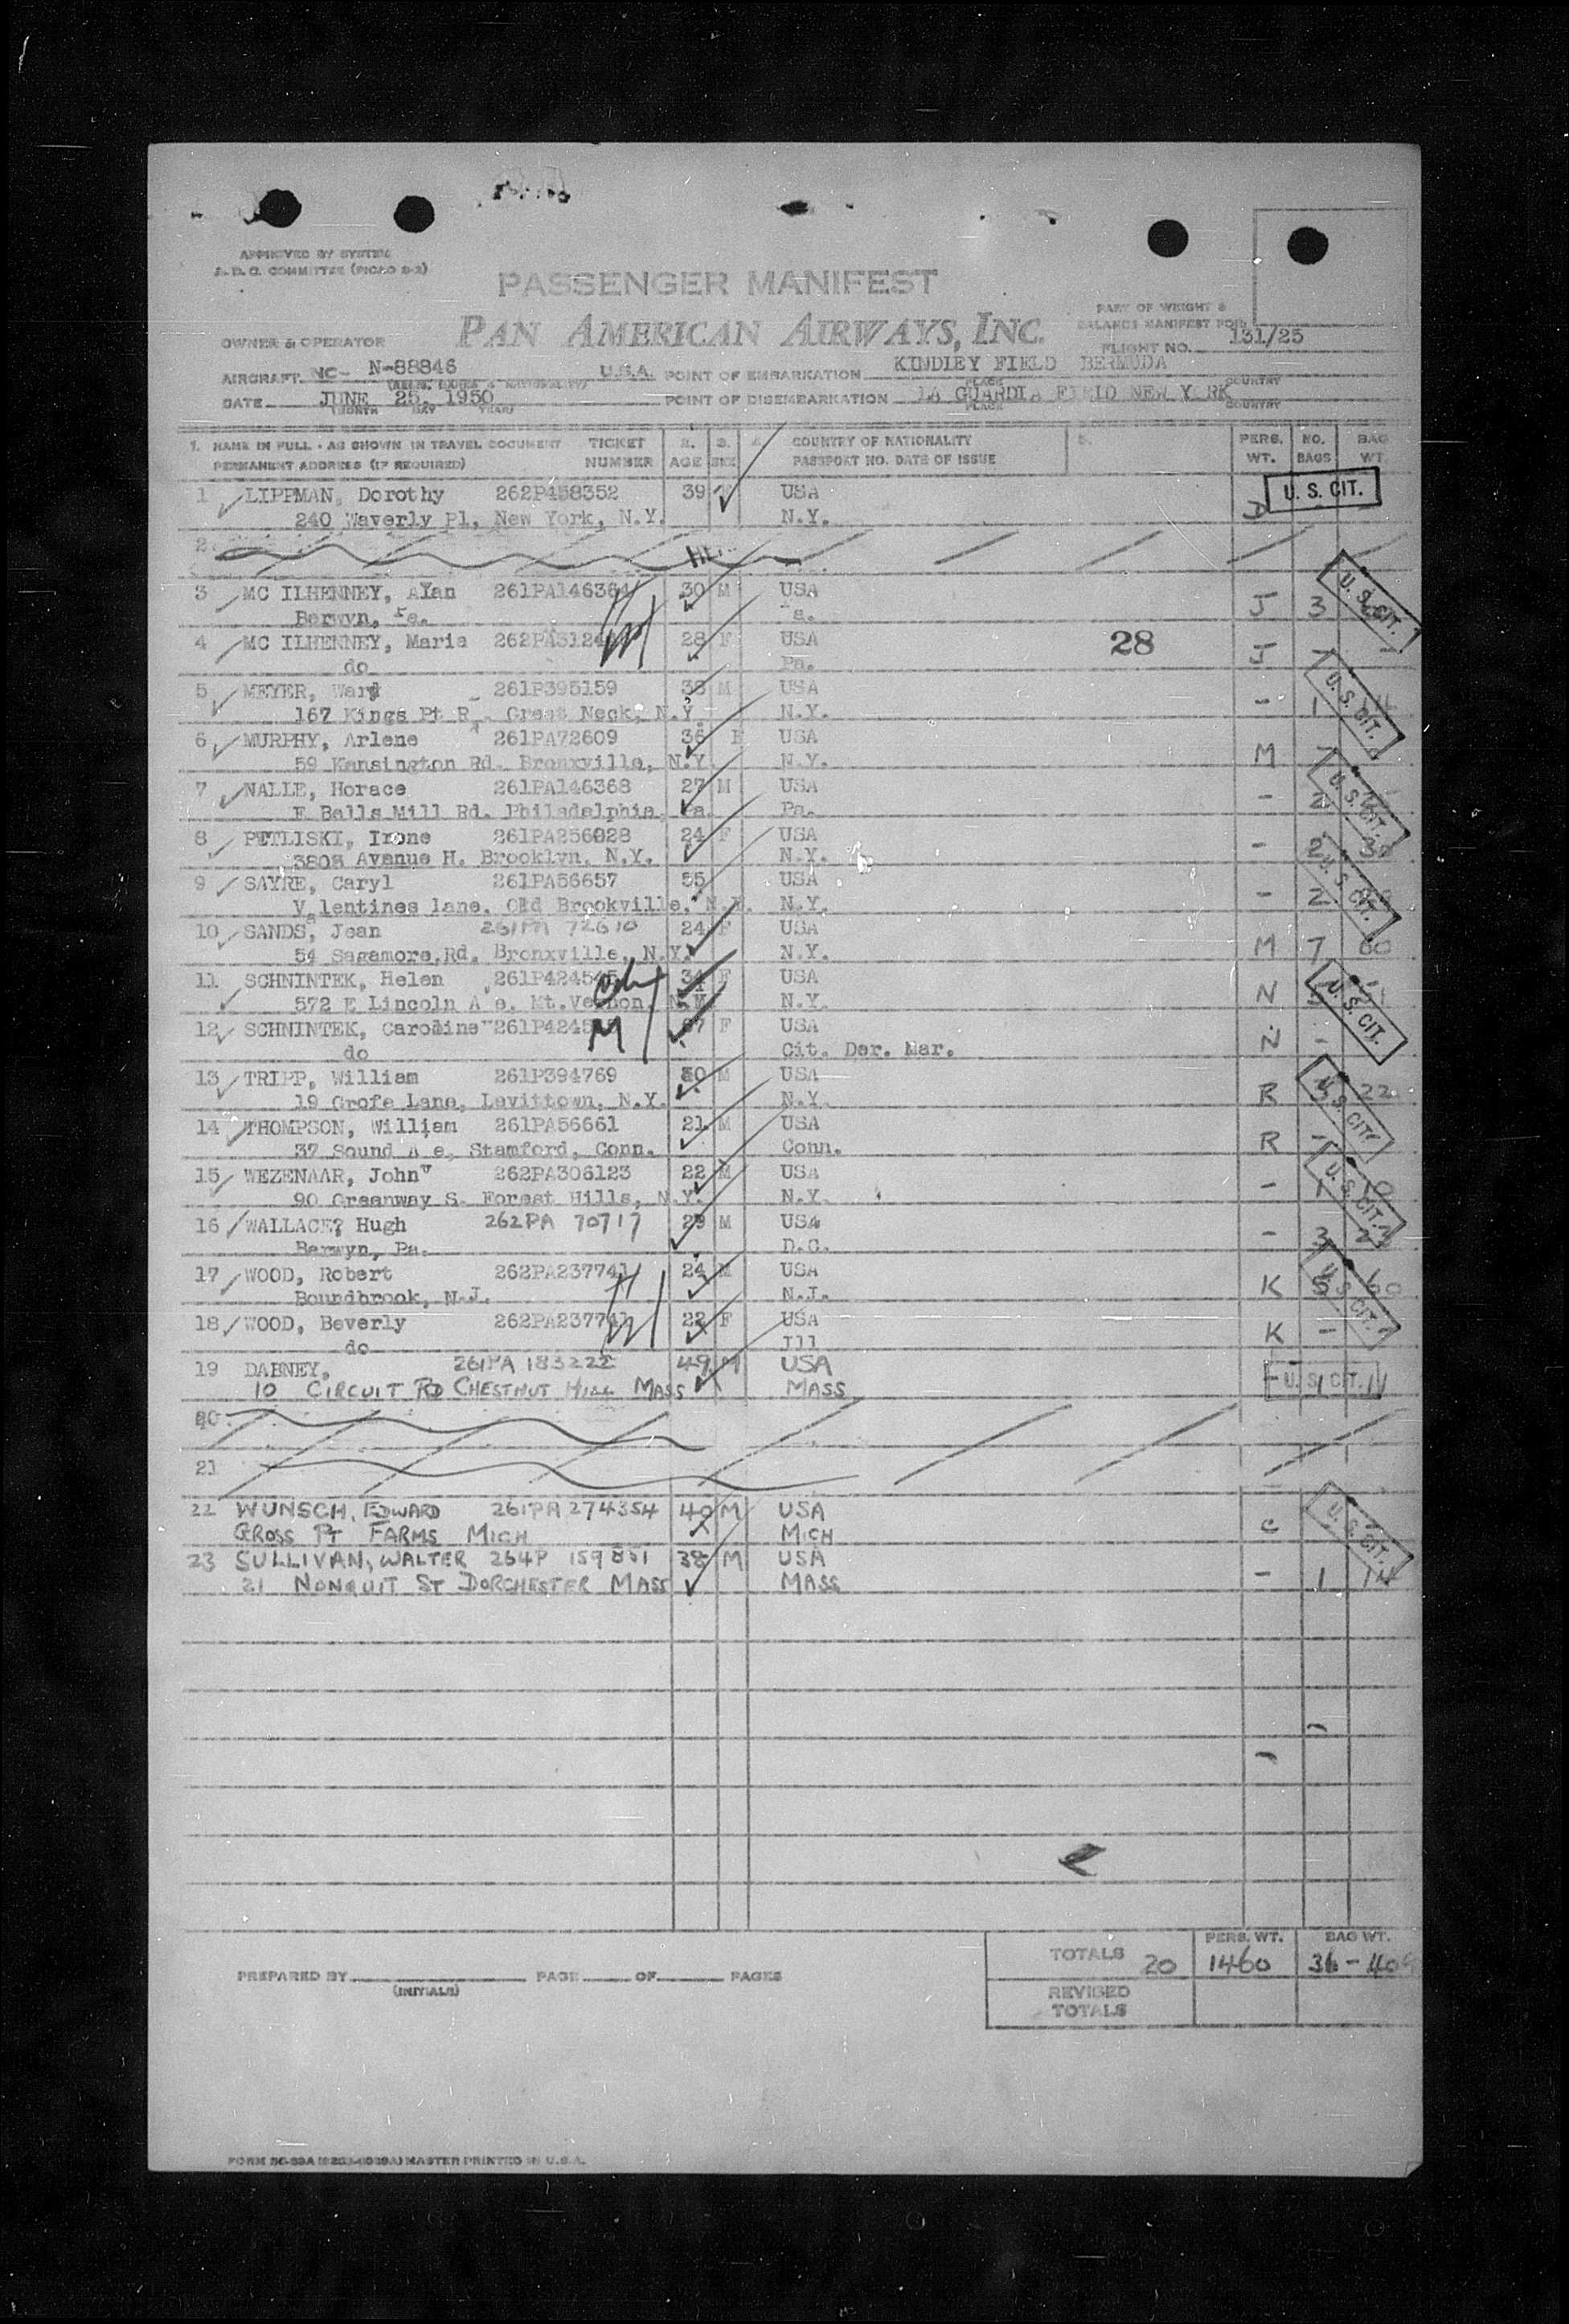 APPROVED BY SYSTEM
PASSENGER MANIFEST
PAN AMERICAN AIRWAYS, INC.
PART OF WEIGHT &
BALANCE MANIFEST FOR
FLIGHT NO. 131/25
OWNER & OPERATOR
AIRCRAFT NC- N-88846 U.S.A. POINT OF EMBARKATION KINDLEY FIELD BERMUDA
PLACE COUNTRY
DATE JUNE 25, 1950 POINT OF DISEMBARKATION LA GUARDIA FIELD NEW YORK
(MONTH DAY YEAR) PLACE COUNTRY
1. NAME IN FULL - AS SHOWN IN TRAVEL DOCUMENT TICKET 2. 3. 4. COUNTRY OF NATIONALITY 5. PERS. NO. BAG
PERMANENT ADDRESS (IF REQUIRED) NUMBER AGE SEX PASSPORT NO. DATE OF ISSUE WT. BAGS WT.
1 LIPPMAN, Dorothy 262P458352 39 USA U. S. CIT.
240 Waverly Pl, New York, N.Y. N.Y. D
2
3 MC ILHENNEY, Alan 261PA146364 30 M USA U. S. CIT.
Berwyn, Pa. Pa. J 3
4 MC ILHENNEY, Marie 28 F USA 28
do Pa. J -
5 MEYER, Ward 261P395159 38 M USA U. S. CIT.
167 Kings Pt R. Great Neck, N.Y. N.Y. - 1
6 MURPHY, Arlene 261PA72609 36 F USA
59 Kensington Rd. Bronxville, N.Y. N.Y. M 7
7 NALLE, Horace 261PA146368 27 M USA U. S. CIT.
E Bells Mill Rd. Philadelphia, Pa. Pa. - 2
8 PETLISKI, Irene 261PA256028 24 F USA
3808 Avenue H. Brooklyn, N.Y. N.Y. - 2
9 SAYRE, Caryl 261PA56657 55 USA U. S. CIT.
Valentines Lane, Old Brookville, N.Y. N.Y. - 2
10 SANDS, Jean 261PA 72610 24 F USA
54 Sagamore,Rd. Bronxville, N.Y. N.Y. M 7 60
11 SCHNINTEK, Helen 34 F USA U. S. CIT.
572 E Lincoln A e. Mt.Vernon, N.Y. N.Y. N
12 SCHNINTEK, Caroline 67 F USA
do Cit. Der. Mar. N -
13 TRIPP, William 261P394769 30 M USA U. S. CIT.
19 Grofe Lane, Levittown, N.Y. N.Y. R 3 22
14 THOMPSON, William 261PA56661 21 M USA
37 Sound A e, Stamford, Conn. Conn. R -
15 WEZENAAR, John 262PA306123 22 M USA U. S. CIT.
90 Greenway S. Forest Hills, N.Y. N.Y. - 1 10
16 WALLACE? Hugh 262PA 70717 29 M USA
Berwyn, Pa. D.C. - 3
17 WOOD, Robert 262PA237741 24 M USA U. S. CIT.
Boundbrook, N.J. N.J. K 5 60
18 WOOD, Beverly 262PA237741 22 F USA
do Ill K -
19 DABNEY, 261PA 183222 49 M USA
10 CIRCUIT RD CHESTNUT HILL MASS MASS - U. S. CIT. 1 11
21
22 WUNSCH, EDWARD 261PA 274354 40 M USA U. S. CIT.
GROSS PT FARMS MICH MICH C
23 SULLIVAN, WALTER 264P 159851 38 M USA
21 NONQUIT ST DORCHESTER MASS MASS - 1 14
PERS. WT. BAG WT.
TOTALS 20 1460 36 -
PREPARED BY PAGE OF PAGES
(INITIALS)
REVISED
TOTALS
MASTER PRINTED IN U.S.A.